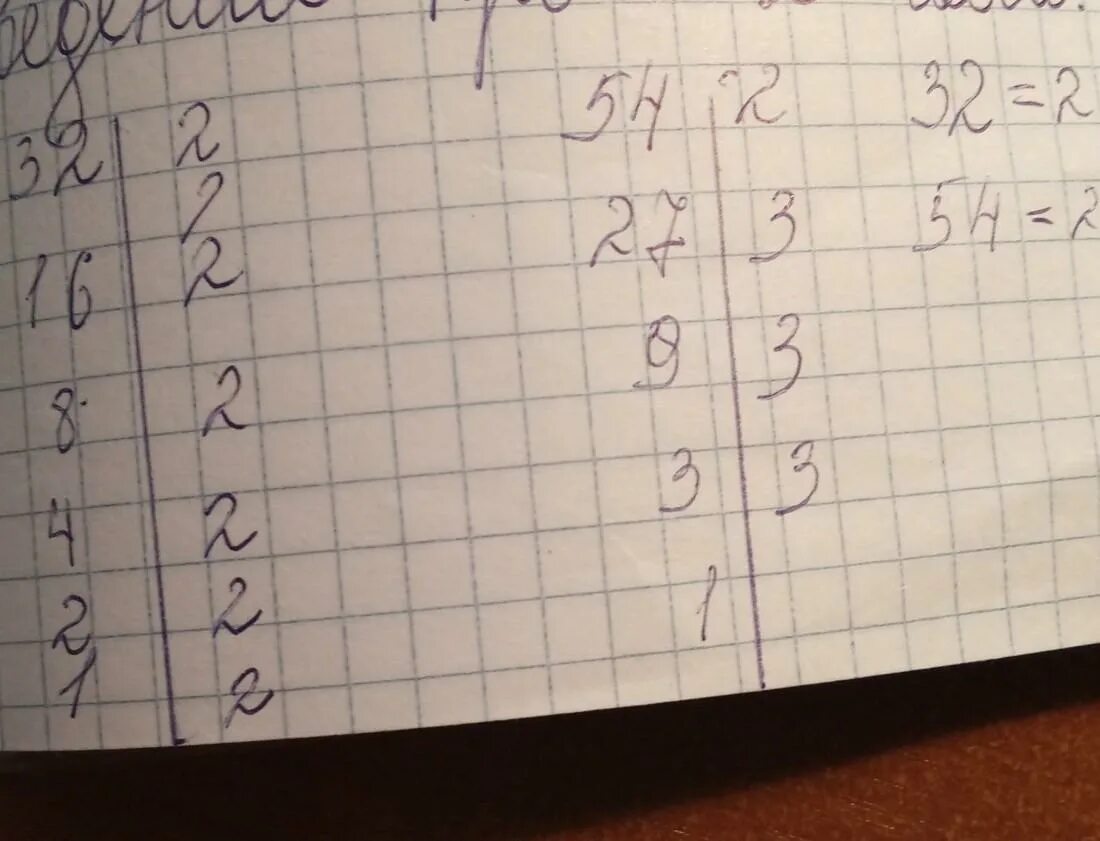 32 | 2 54 | 2 32 = 2
2
16 | 2 27 | 3 54 = 2
8 | 2 9 | 3
4 | 2 3 | 3
2 | 2 1
1 | 2